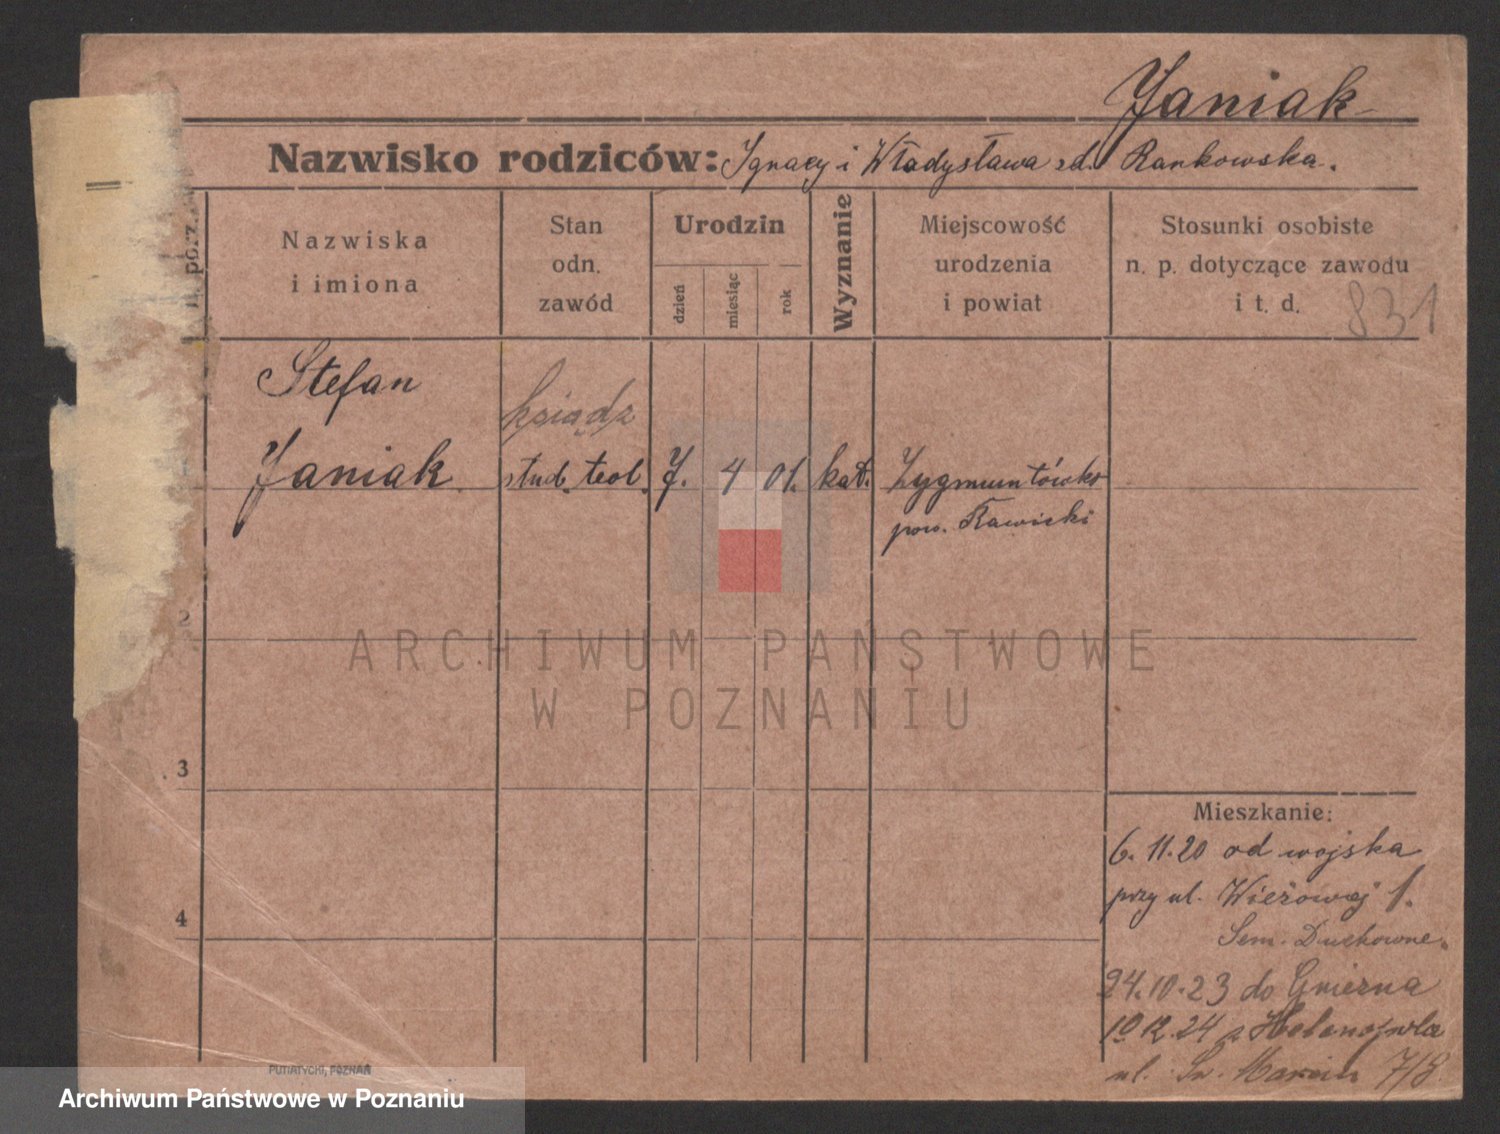 Janiak
Nazwisko rodziców: Ignacy i Władysława zd. Rankowska.
n. porz.
Nazwiska
i imiona
Stan
odn.
zawód
Urodzin
dzień
miesiąc
rok
Wyznanie
Miejscowość
urodzenia
i powiat
Stosunki osobiste
n. p. dotyczące zawodu
i t. d.
831
Stefan
Janiak
ksiądz
stud. teol.
7.
4
01.
kat.
Zygmuntówko
pow. Rawicki
2
3
4
Mieszkanie:
6.11.20 od wojska
przy ul. Wieżowej 1.
Sem. Duchowne.
24.10.23 do Gniezna
10.12.24 z
ul. Św. Marcin 7/8
PUTIATYCKI, POZNAŃ
ARCHIWUM PAŃSTWOWE
W POZNANIU
Archiwum Państwowe w Poznaniu